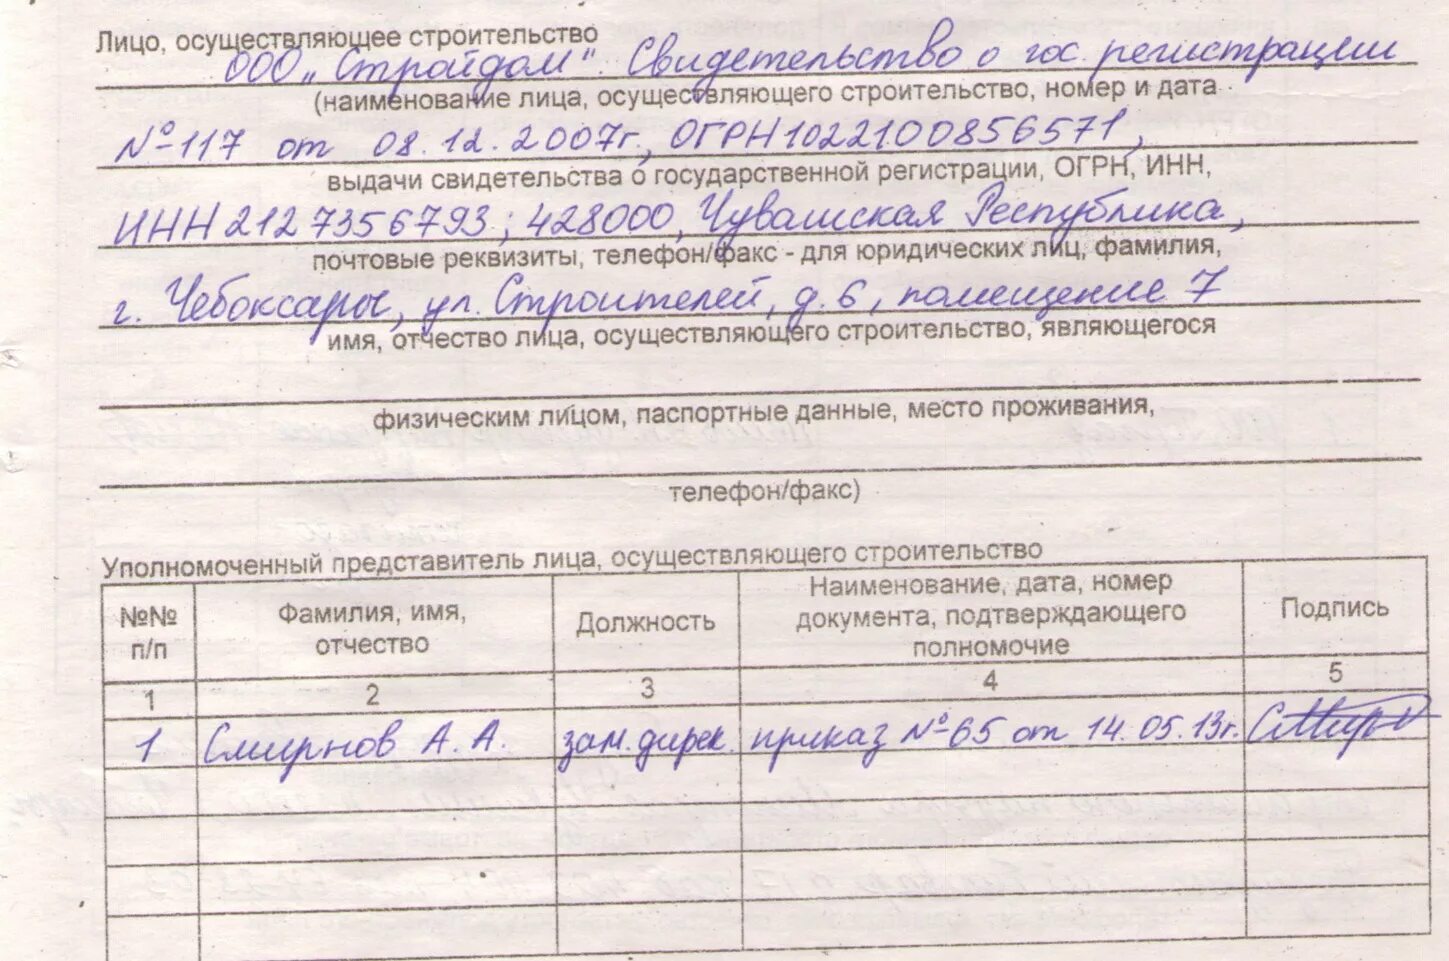 Лицо, осуществляющее строительство
ООО „Стройдом". Свидетельство о гос. регистрации
(наименование лица, осуществляющего строительство, номер и дата
№117 от 08.12.2007г., ОГРН1022100856571,
выдачи свидетельства о государственной регистрации, ОГРН, ИНН,
ИНН2127356793; 428000, Чувашская Республика,
почтовые реквизиты, телефон/факс - для юридических лиц, фамилия,
г. Чебоксары, ул. Строителей, д. 6, помещение 7
имя, отчество лица, осуществляющего строительство, являющегося
физическим лицом, паспортные данные, место проживания,
телефон/факс)
Уполномоченный представитель лица, осуществляющего строительство
№№ п/п
Фамилия, имя, отчество
Должность
Наименование, дата, номер
документа, подтверждающего
полномочие
Подпись
1 2 3 4 5
1 Смирнов А.А. зам. дирек. приказ №65 от 14.05.13г.